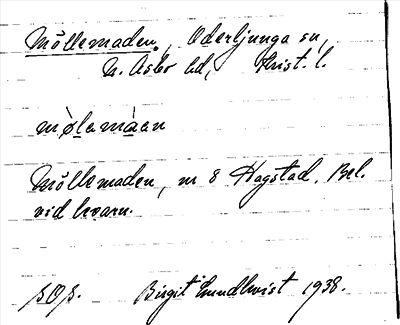 Möllemaden, Oderljunga sn,
N. Åsbo hd, Krist. l.
mø̀lemàen
Möllemaden, nr 8 Hagstad. Bel.
vid kvarn.
Birgit Lundkvist 1938.